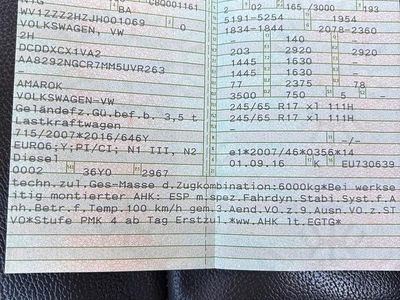 BA CBQ001161 2 02 165 /3000 193
WV1ZZZ2HZJH001069 0 5191-5254 1954
VOLKSWAGEN, VW 1834-1844 2078-2360
2H 140
DCDDXCX1VA2 203 2920 2920
AA8292NGCR7MM5UVR263 1445 1630 -
– 1445 1630 -
AMAROK 77 2375 78
VOLKSWAGEN-VW 3500 750 5 -
Geländefz.Gü.bef.b. 3,5 t 245/65 R17 xl 111H
Lastkraftwagen 245/65 R17 xl 111H
715/2007*2016/646Y –
EURO6;Y;PI/CI; N1 III, N2 -/-
Diesel e1*2007/46*0356*14
0002 36Y0 2967 01.09.16 K EU730639
techn.zul.Ges-Masse d.Zugkombination:6000kg*Bei werkse
itig montierter AHK: ESP m.spez.Fahrdyn.Stabi.Syst.f.A
nh.Betr.f.Temp.100 km/h gem.3.Aend.VO.z.9.Ausn.VO.z.ST
VO*Stufe PMK 4 ab Tag Erstzul.*ww.AHK lt.EGTG*